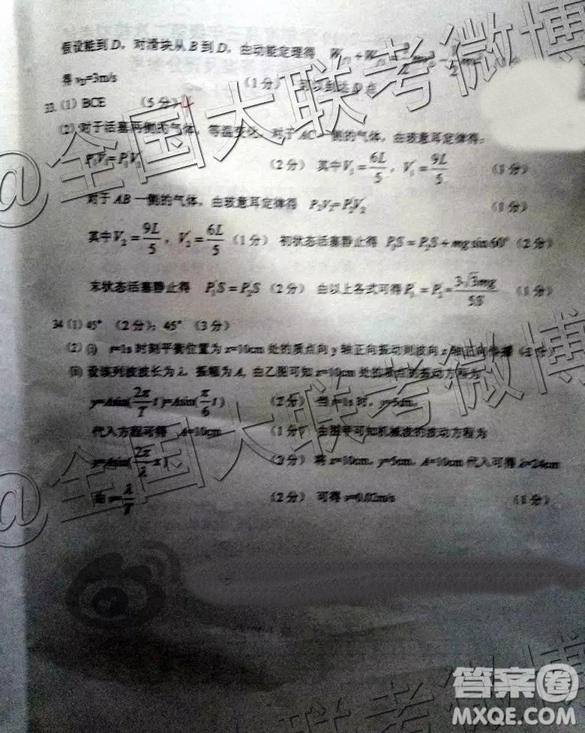 假设能到D，对滑块从B到D，由动能定理得
得 v_D=3m/s （1分） 可以到达D点
33.（1）BCE （5分）
（2）对于活塞两侧的气体，等温变化，对于AC一侧的气体，由玻意耳定律得：
P₁V₁=P₁′V₁′ （2分） 其中V₁=6L/5，V₁′=9L/5 （1分）
对于AB一侧的气体，由玻意耳定律得 P₂V₂=P₂′V₂′ （1分）
其中V₂=9L/5，V₂′=6L/5（1分） 初状态活塞静止得 P₁S=P₂S+mg sin60°（2分）
末状态活塞静止得 P₁′S=P₂′S（2分） 由以上各式可得P₁′=P₂′=3√3mg/5S （1分）
34（1）45° （2分）；45° （3分）
（2）(i) t=1s时刻平衡位置为x=10cm处的质点向y轴正向振动则波向x轴正向传播
(ii) 设该列波波长为λ，振幅为A，由乙图可知x=10cm处的质点的振动方程为
y=Asin(2π/T t)=Asin(π/6 t) （2分） 当t=1s时，y=5cm，
代入方程可得 A=10cm （1分） 由图甲可知机械波的波动方程为
y=Asin(2π/λ x) （2分） 将x=10cm，y=5cm，A=10cm代入可得λ=24cm
由v=λ/T （2分） 可得v=0.02m/s （1分）
@全国大联考微博
@全国大联考微博
答案圈
MXQE.COM